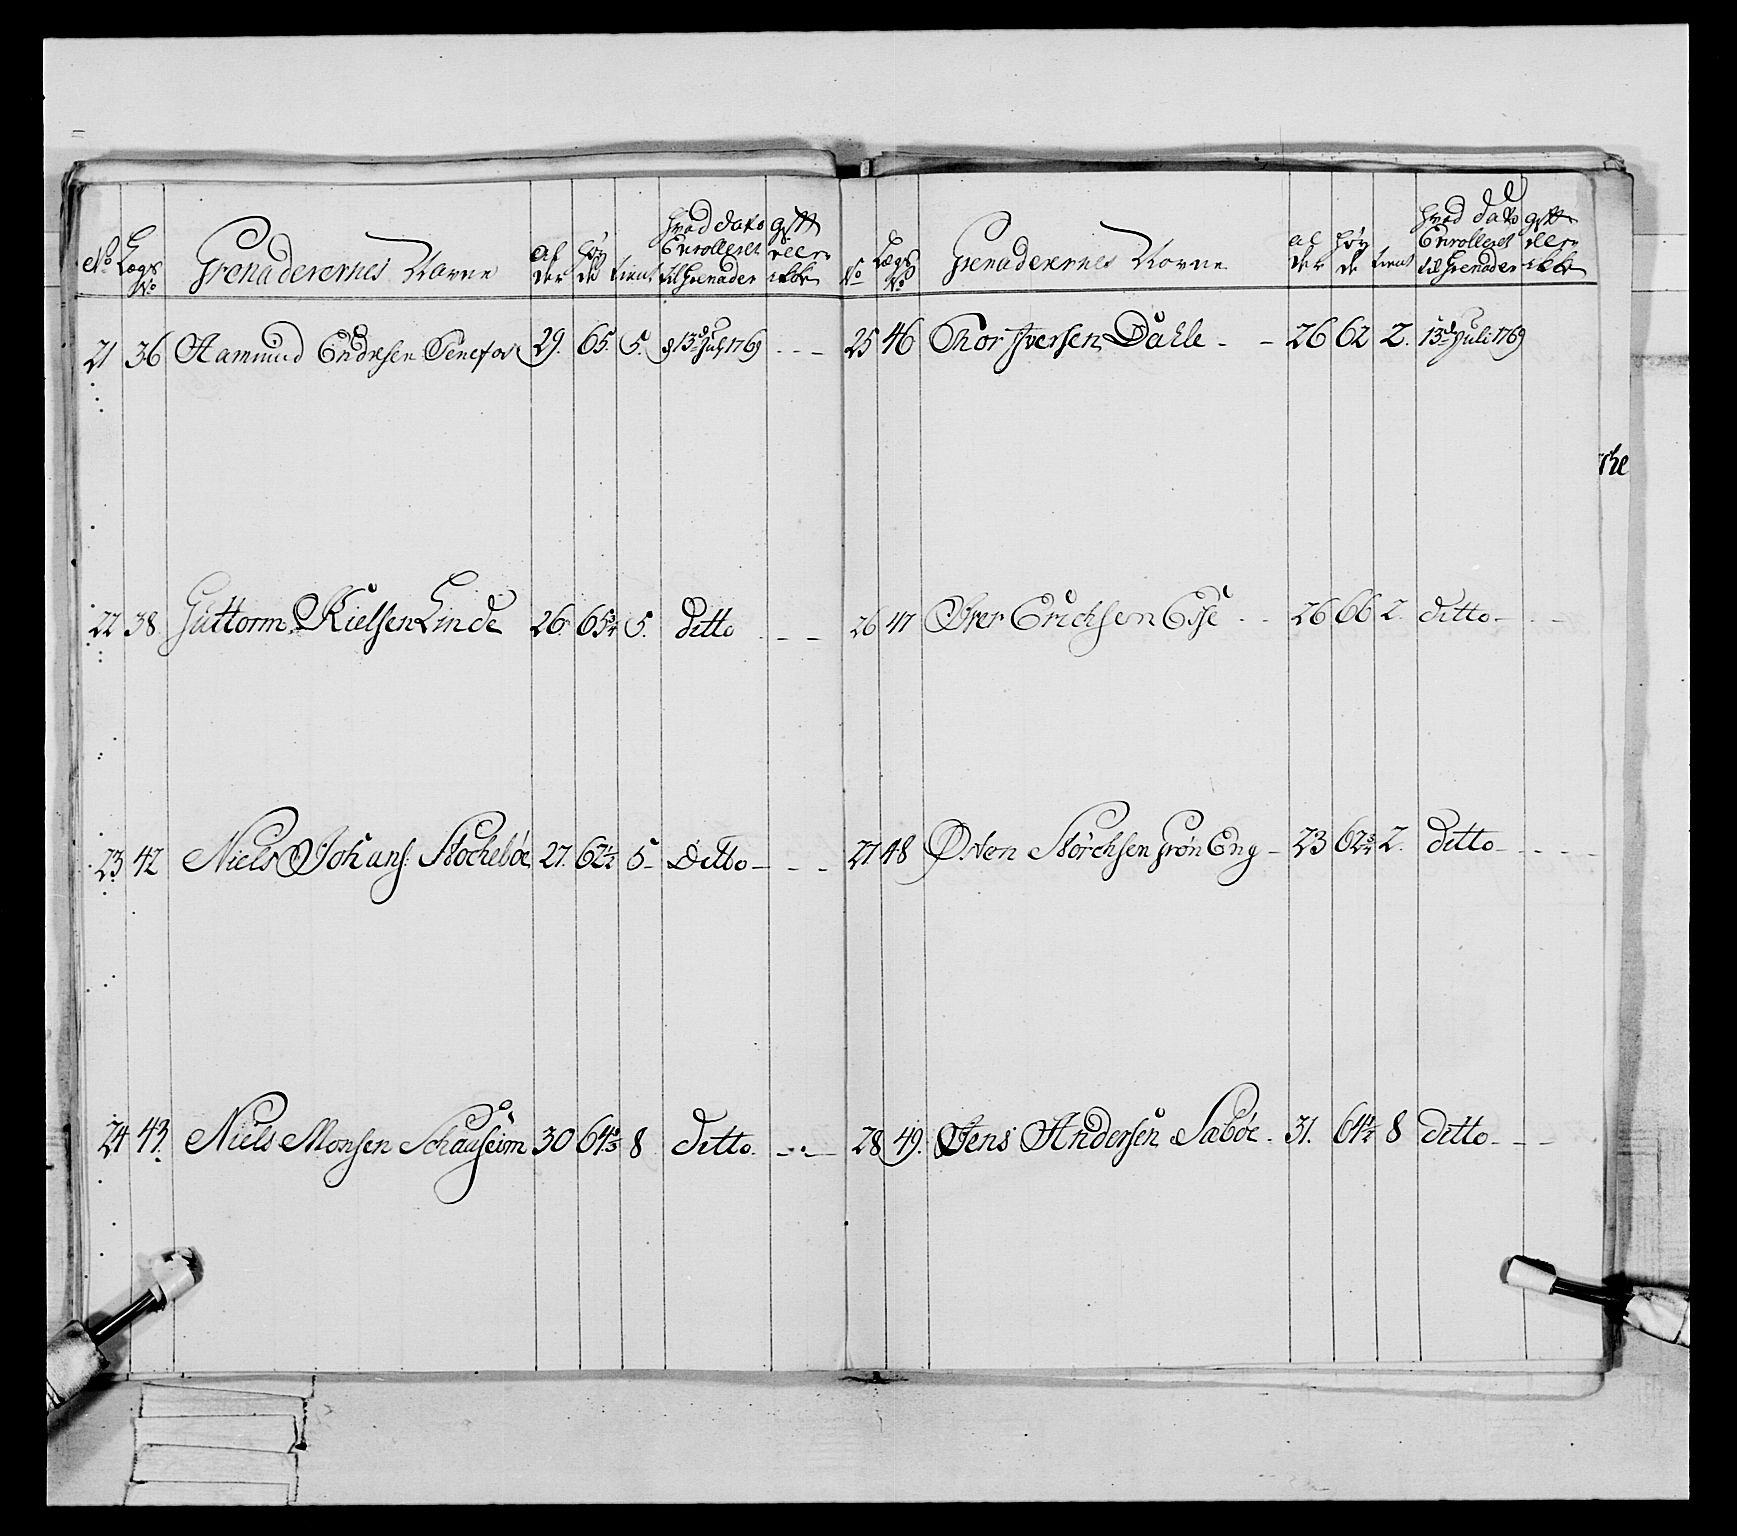 No Lægs No Grenaderernes Navne al der høy de tient hvad dato Enrolleret til Grenader gift eller ikke
21 36 Aamund Endresen 29. 65. 5. d 13de July 1769 - - -
22 38 Guttorm Kielsen Linde 26 65¾ 5. Ditto - - -
23 42 Niels Johans: Stochebøe 27. 62½ 5 - Ditto - - -
24 43. Niels Monsen 30 64 8 Ditto. - - -
No Lægs No Grenaderernes Navne al der høy de tient hvad dato Enrolleret til Grenader gift eller ikke
25 46 Thor Iversen Dahle - - 26 62 2. 13de Juli 1769
26 47 Erichsen - - 26 66 2. ditto - - -
27 48 Størchsen Grøn Eng - 23 62¾ 2. Ditto - - - -
28 49. Jens Andersen Sabøe - 31. 61½ 8 Ditto - - -